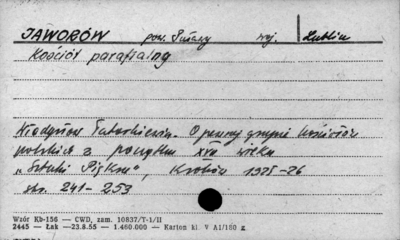 JAWORÓW pow. Puławy woj. Lublin
Kościół parafialny
Władysław Tatarkiewicz. O pewnej grupie kościołów
polskich z początku XVII wieku
„Sztuki Piękne", Kraków 1925-26
str. 241-253
Wzór Kb-156 — CWD, zam. 10837/T-1/II
2445 — Łak —23.8.55 — 1.460.000 — Karton kl. V A1/180 g.